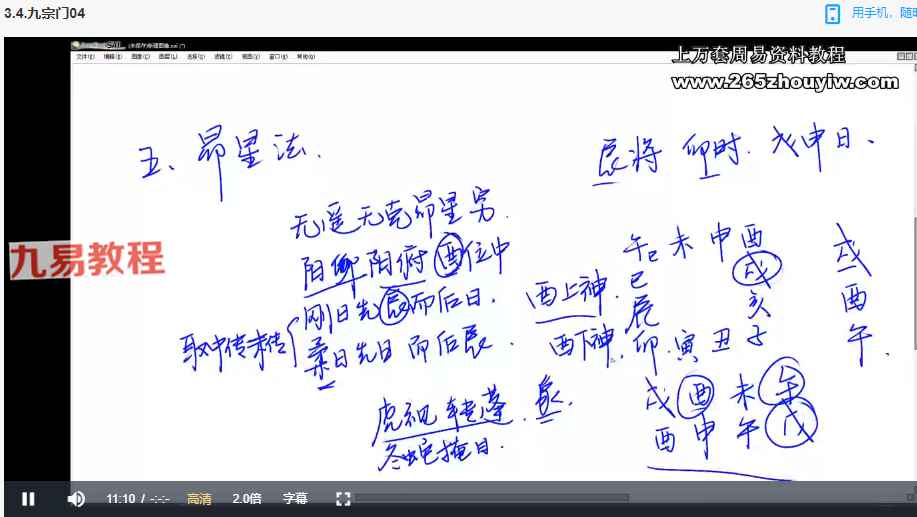 3.4.九宗门04
用手机，随时
文件(F) 编辑(E) 图像(I) 图层(L) 选择(S) 滤镜(T) 视图(V) 窗口(W) 帮助(H)
上万套周易资料教程
www.265zhouyiw.com
五、昴星法.
辰将 卯时. 戊申日、
无遥无克昴星穷.
阳仰阴俯酉位中
刚日先辰而后日.
取中传末传
柔日先日而后辰.
酉上神.
酉下神.
午 未 申 酉
巳 戌
辰 亥
卯 寅 丑 子
戌
酉
午
戌 酉 未 午
酉 申 午 戊
虎视转蓬.
冬蛇掩目.
九易教程
11:10 / -:-:- 高清 2.0倍 字幕